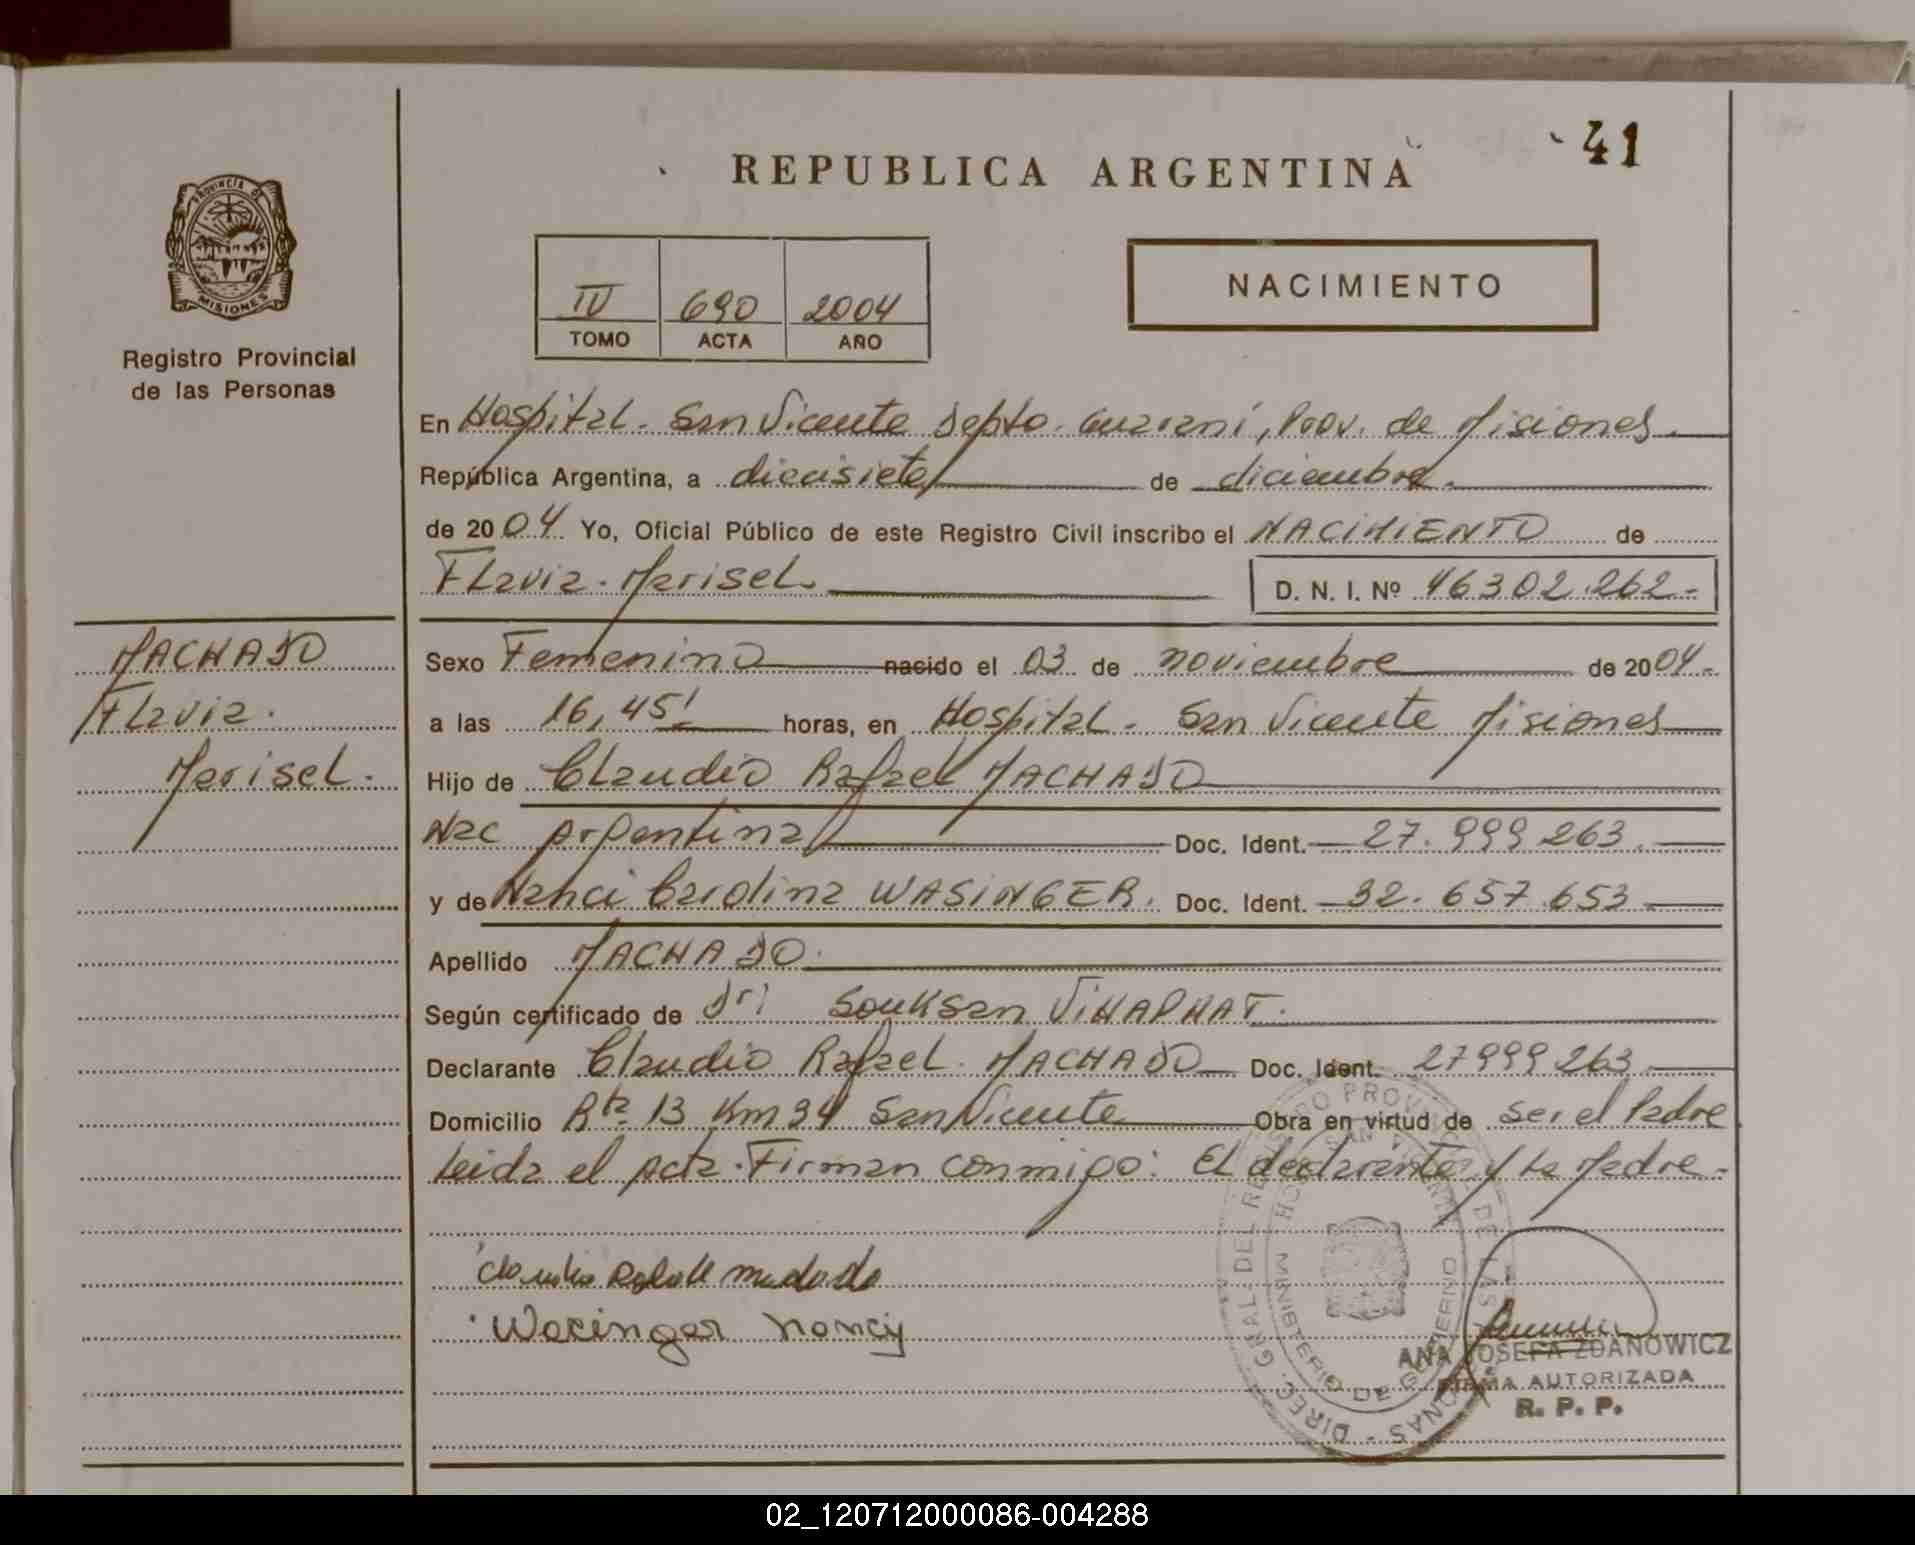 41
REPUBLICA ARGENTINA
PROVINCIA DE
MISIONES
Registro Provincial
de las Personas
IV 690 2004
TOMO ACTA AÑO
NACIMIENTO
En Hospital. San Vicente Depto. Guaraní, Prov. de Misiones.
República Argentina, a diecisiete de diciembre.
de 2004. Yo, Oficial Público de este Registro Civil inscribo el NACIMIENTO de
Flavia. Marisel. D. N. I. Nº 46302.262-
MACHADO
Flavia.
Marisel.
Sexo Femenino nacido el 03 de noviembre de 2004-
a las 16,45' horas, en Hospital. San Vicente Misiones
Hijo de Claudio Rafael MACHADO
Nac Argentina Doc. Ident. 27.999 263.
y de Nanci Carolina WASINGER. Doc. Ident. 32.657.653
Apellido MACHADO.
Según certificado de Souksan VIHAPHAT.
Declarante Claudio Rafael. MACHADO Doc. Ident. 27999263
Domicilio Rta. 13 Km 34 San Vicente Obra en virtud de ser el Padre
Leida el acta. Firman conmigo: El declarante y La Madre-
Wacinger nancy
DIREC. GRAL. DEL REGISTRO PROVINCIAL DE LAS PERSONAS
MINISTERIO DE GOBIERNO
ANA JOSEFA ZDANOWICZ
FIRMA AUTORIZADA
R. P. P.
02_120712000086-004288